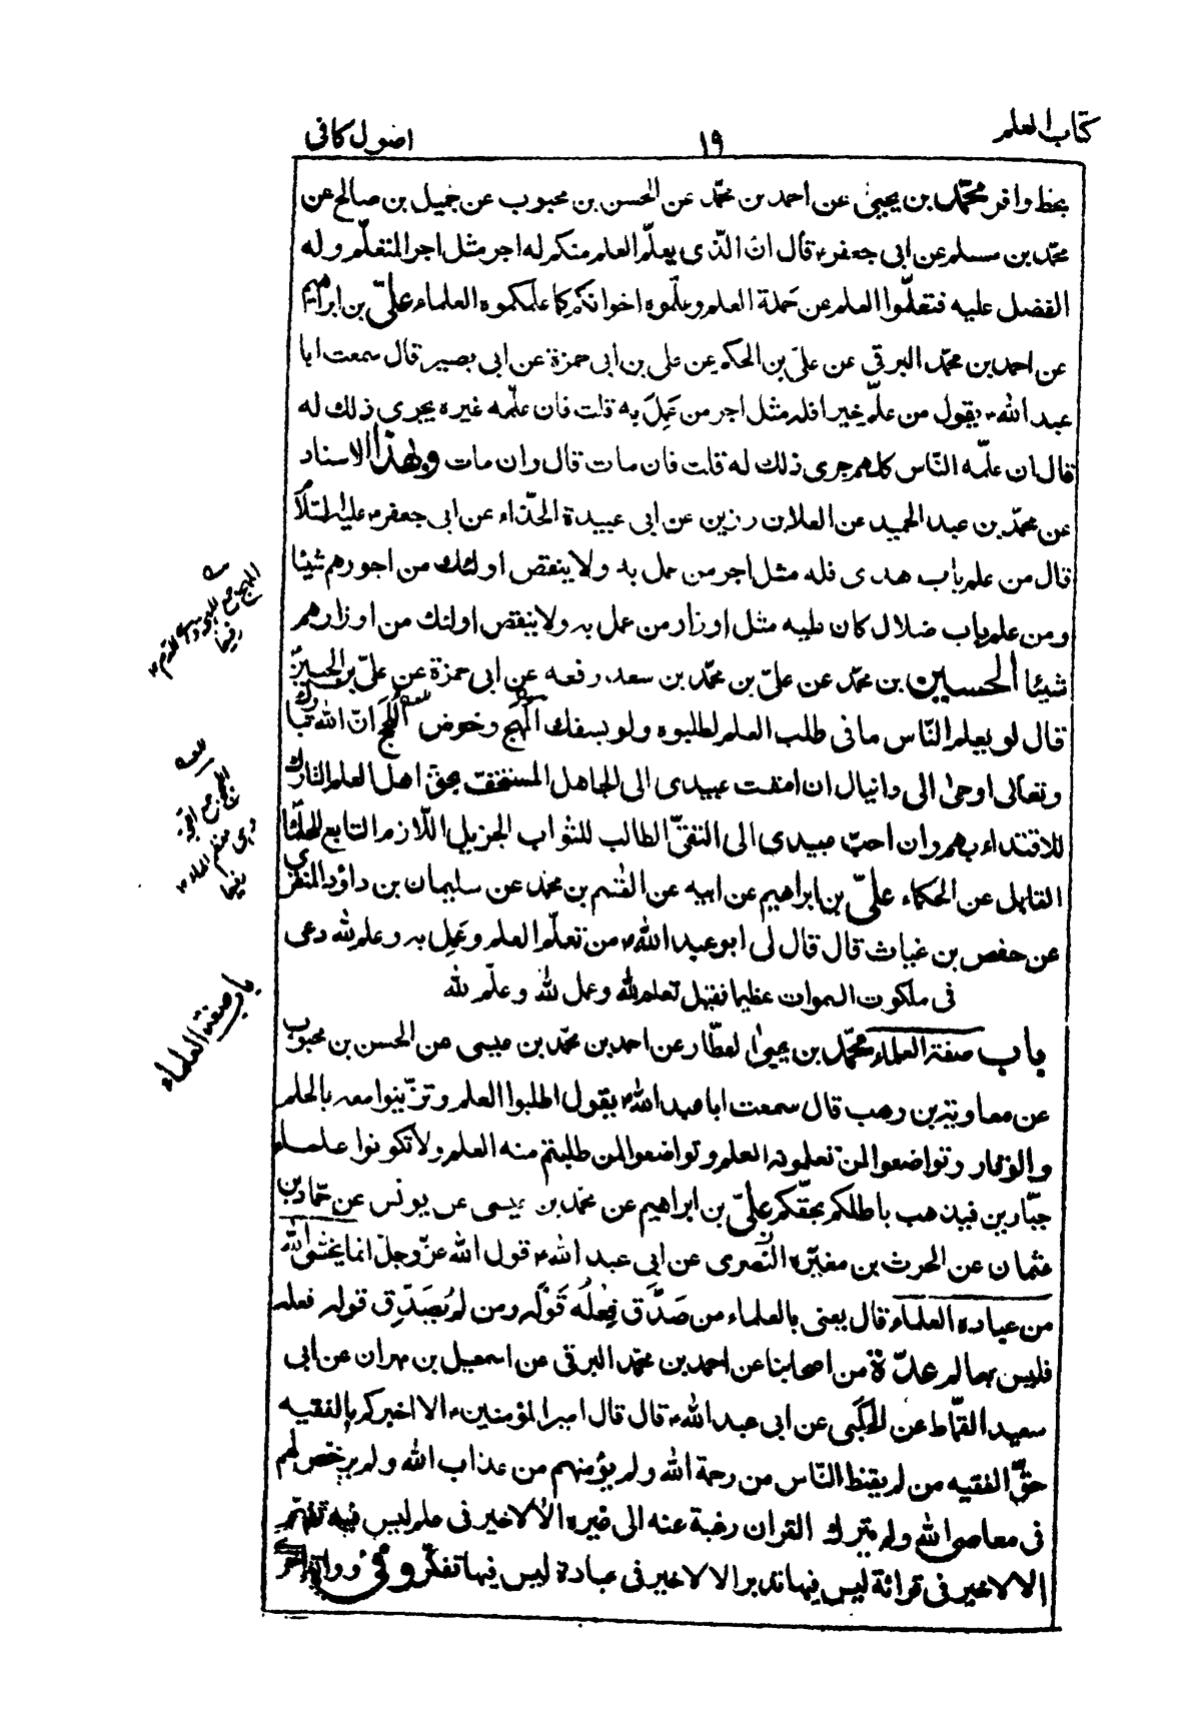 كتاب العلم
١٩
اصول كافى
بحظ وافر محمّد بن يحيى عن احمد بن محمّد عن الحسن بن محبوب عن جميل بن صالح عن
محمّد بن مسلم عن ابى جعفر ع قال ان الّذى يعلّم العلم منكم له اجر مثل اجر المتعلّم وله
الفضل عليه فتعلّموا العلم عن حَملة العلم وعلّموه اخوانكم كما علمكموه العلماء علىّ بن ابراهيم
عن احمد بن محمّد البرقى عن علىّ بن الحكم عن على بن ابى حمزة عن ابى بصير قال سمعت ابا
عبد الله ع يقول من علّم خيرا فله مثل اجر من عَمِلَ به قلت فان علّمه غيره يجرى ذلك له
قال ان علّمه النّاس كلهم جرى ذلك له قلت فان مات قال وان مات وبهذا الاسناد
عن محمّد بن عبد الحميد عن العلا بن رزين عن ابى عبيدة الحذّاء عن ابى جعفر عليه السّلام
قال من علم باب هدى فله مثل اجر من عمل به ولا ينقص اولئك من اجورهم شيئا
ومن علم باب ضلال كان عليه مثل اوزار من عمل به ولا ينقص اولئك من اوزارهم
شيئا الحسين بن محمّد عن علىّ بن محمّد بن سعد رفعه عن ابى حمزة عن علىّ بن الحسين
قال لو يعلم النّاس ما فى طلب العلم لطلبوه ولو بسفك المُهَج وخوض اللُّجَج انّ الله تبارك
وتعالى اوحى الى دانيال ان امقت عبيدى الى الجاهل المستخفّ بحقّ اهل العلم التارك
للاقتداء بهم وان احبّ عبيدى الى التقىّ الطالب للثواب الجزيل اللّازم التابع للحلماء
القابل عن الحكماء علىّ بن ابراهيم عن ابيه عن القسم بن محمّد عن سليمان بن داؤد المنقرى
عن حفص بن غياث قال قال لى ابو عبد الله ع من تعلّم العلم وعَمِل به وعلم لله دعى
فى ملكوت السموات عظيما فقيل تعلم لله وعمل لله وعلّم لله
باب صفة العلماء محمّد بن يحيى العطّار عن احمد بن محمّد بن عيسى عن الحسن بن محبوب
عن معاوية بن وهب قال سمعت ابا عبد الله ع يقول اطلبوا العلم وتزيّنوا معه بالحلم
والوقار وتواضعوا لمن تعلمونه العلم وتواضعوا لمن طلبتم منه العلم ولا تكونوا علماء
جبّارين فيذهب باطلكم بحقّكم علىّ بن ابراهيم عن محمّد بن عيسى عن يونس عن حمّاد بن
عثمان عن الحرث بن مغيرة النّصرى عن ابى عبد الله ع قول الله عزّ وجلّ انما يخشى الله
من عباده العلماء قال يعنى بالعلماء من صَدَّق فِعلُه قَولَه ومن لم يُصَدِّق قوله فعله
فليس بعالم عدّة من اصحابنا عن احمد بن محمّد البرقى عن اسمعيل بن مهران عن ابى
سعيد القمّاط عن الحَلَبى عن ابى عبد الله ع قال قال امير المؤمنين ع الا اخبركم بالفقيه
حقّ الفقيه من لم يقنط النّاس من رحمة الله ولم يؤمنهم من عذاب الله ولم يرخّص لهم
فى معاصى الله ولم يترك القران رغبة عنه الى غيره الا لا خير فى علم ليس فيه تفهّم
الا لا خير فى قرائة ليس فيها تدبر الا لا خير فى عبادة ليس فيها تفكّر وفى رواية اخرى
باب صفة العلماء